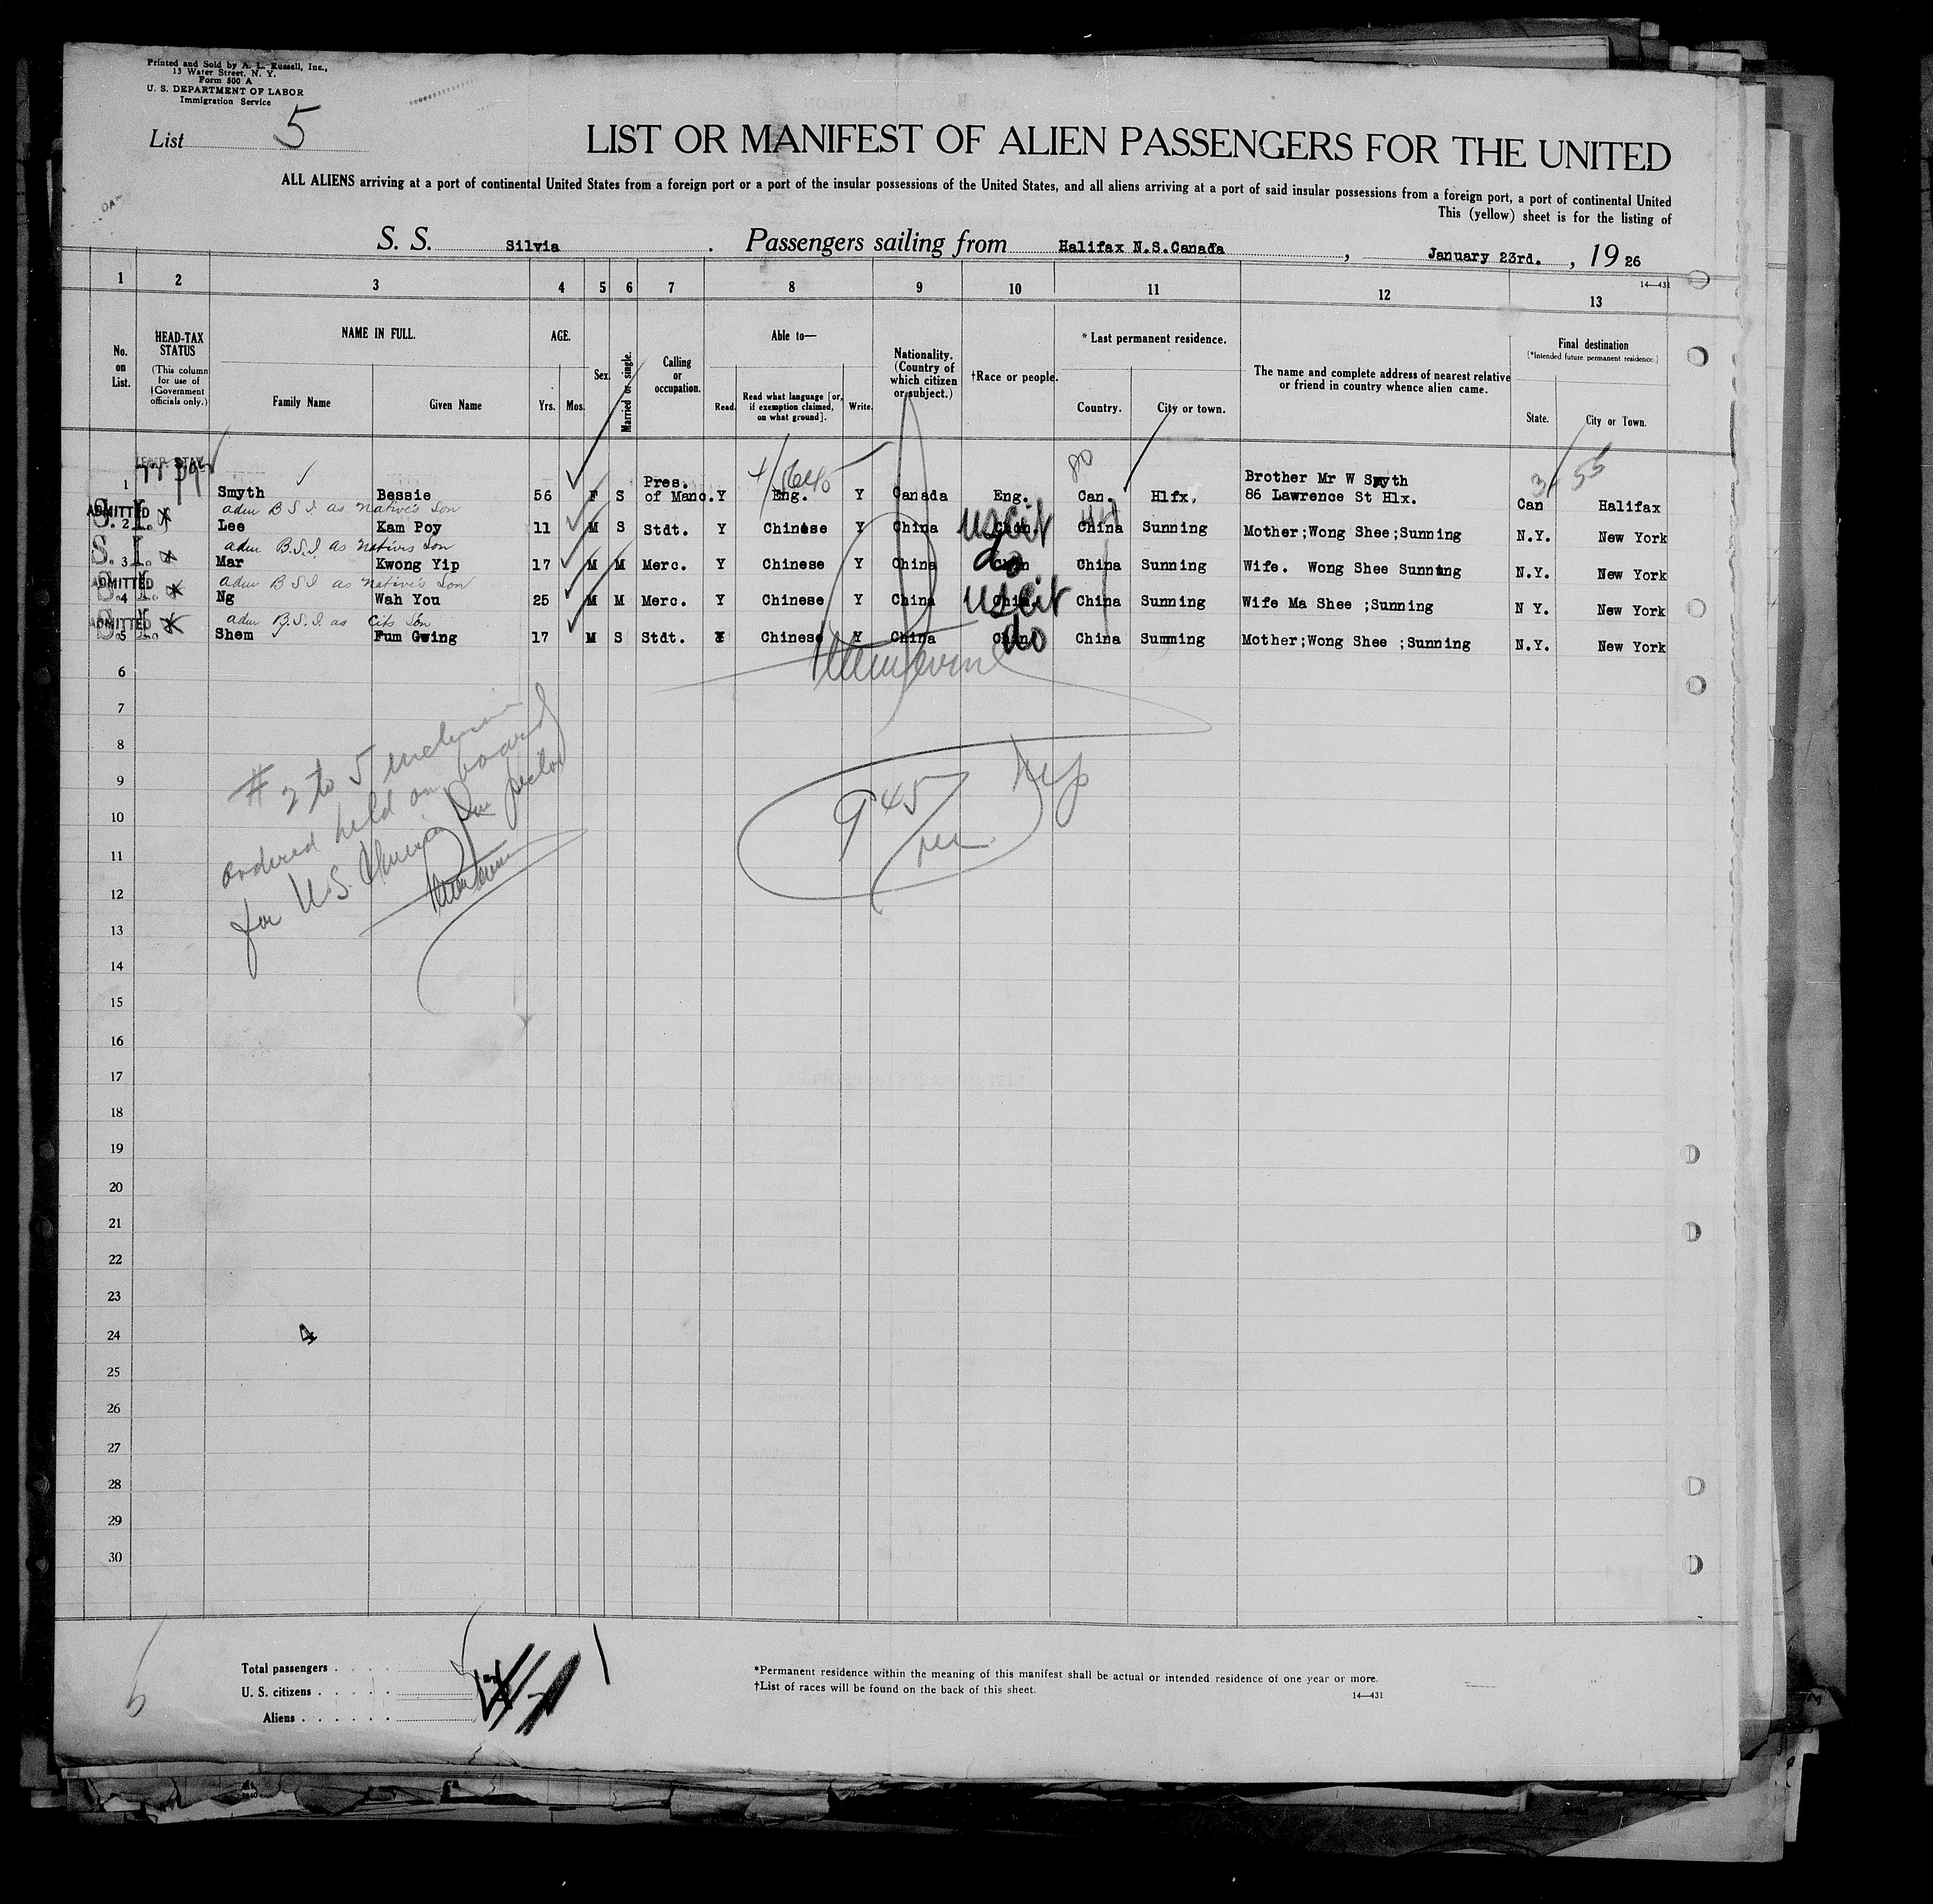 Printed and Sold by A. L. Russell, Inc.,
13 Water Street, N. Y.
Form 500 A
U. S. DEPARTMENT OF LABOR
Immigration Service
List 5
LIST OR MANIFEST OF ALIEN PASSENGERS FOR THE UNITED
ALL ALIENS arriving at a port of continental United States from a foreign port or a port of the insular possessions of the United States, and all aliens arriving at a port of said insular possessions from a foreign port, a port of continental United
This (yellow) sheet is for the listing of
S. S. Silvia . Passengers sailing from Halifax N.S.Canada , January 23rd. , 19 26
1 2 3 4 5 6 7 8 9 10 11 12 13
14—431
No. on List.
HEAD-TAX STATUS
(This column for use of Government officials only.)
NAME IN FULL.
Family Name Given Name
AGE.
Yrs. Mos.
Sex.
Married or single.
Calling or occupation.
Able to—
Read. Read what language [or, if exemption claimed, on what ground]. Write.
Nationality. (Country of which citizen or subject.)
†Race or people.
* Last permanent residence.
Country. City or town.
The name and complete address of nearest relative or friend in country whence alien came.
Final destination
[*Intended future permanent residence.]
State. City or Town.
TEMP. STAY
80 3/55
1 Smyth Bessie 56 F S Pres. of Manc. Y Eng. Y Canada Eng. Can. Hlfx, Brother Mr W Smyth 86 Lawrence St Hlx. Can Halifax
ADMITTED adm B S I. as Native's Son
S. I. 2 Lee Kam Poy 11 M S Stdt. Y Chinese Y China Chin. uscit China Sunning Mother;Wong Shee;Sunning N.Y. New York
adm B.S.I. as Native's Son
S. I. 3 Mar Kwong Yip 17 M M Merc. Y Chinese Y China Chin do China Sunning Wife. Wong Shee Sunning N.Y. New York
ADMITTED adm B S I as Native's Son
S. I. 4 Ng Wah You 25 M M Merc. Y Chinese Y China Chin. uscit China Sunning Wife Ma Shee ;Sunning N Y. New York
ADMITTED adm B.S.I. as Cits Son
S. I. 5 Shem Fum Gwing 17 M S Stdt. Y Chinese Y China Chin. do China Sunming Mother;Wong Shee ;Sunning N.Y. New York
6
7
8
# 2 to 5 inclusive
ordered held on board
for U.S. Chinese Inspector
9 45
9
10
11
12
13
14
15
16
17
18
19
20
21
22
23
24 4
25
26
27
28
29
30
Total passengers . . . . .
U. S. citizens . . . . .
Aliens . . . . . .
*Permanent residence within the meaning of this manifest shall be actual or intended residence of one year or more.
†List of races will be found on the back of this sheet.
14—431